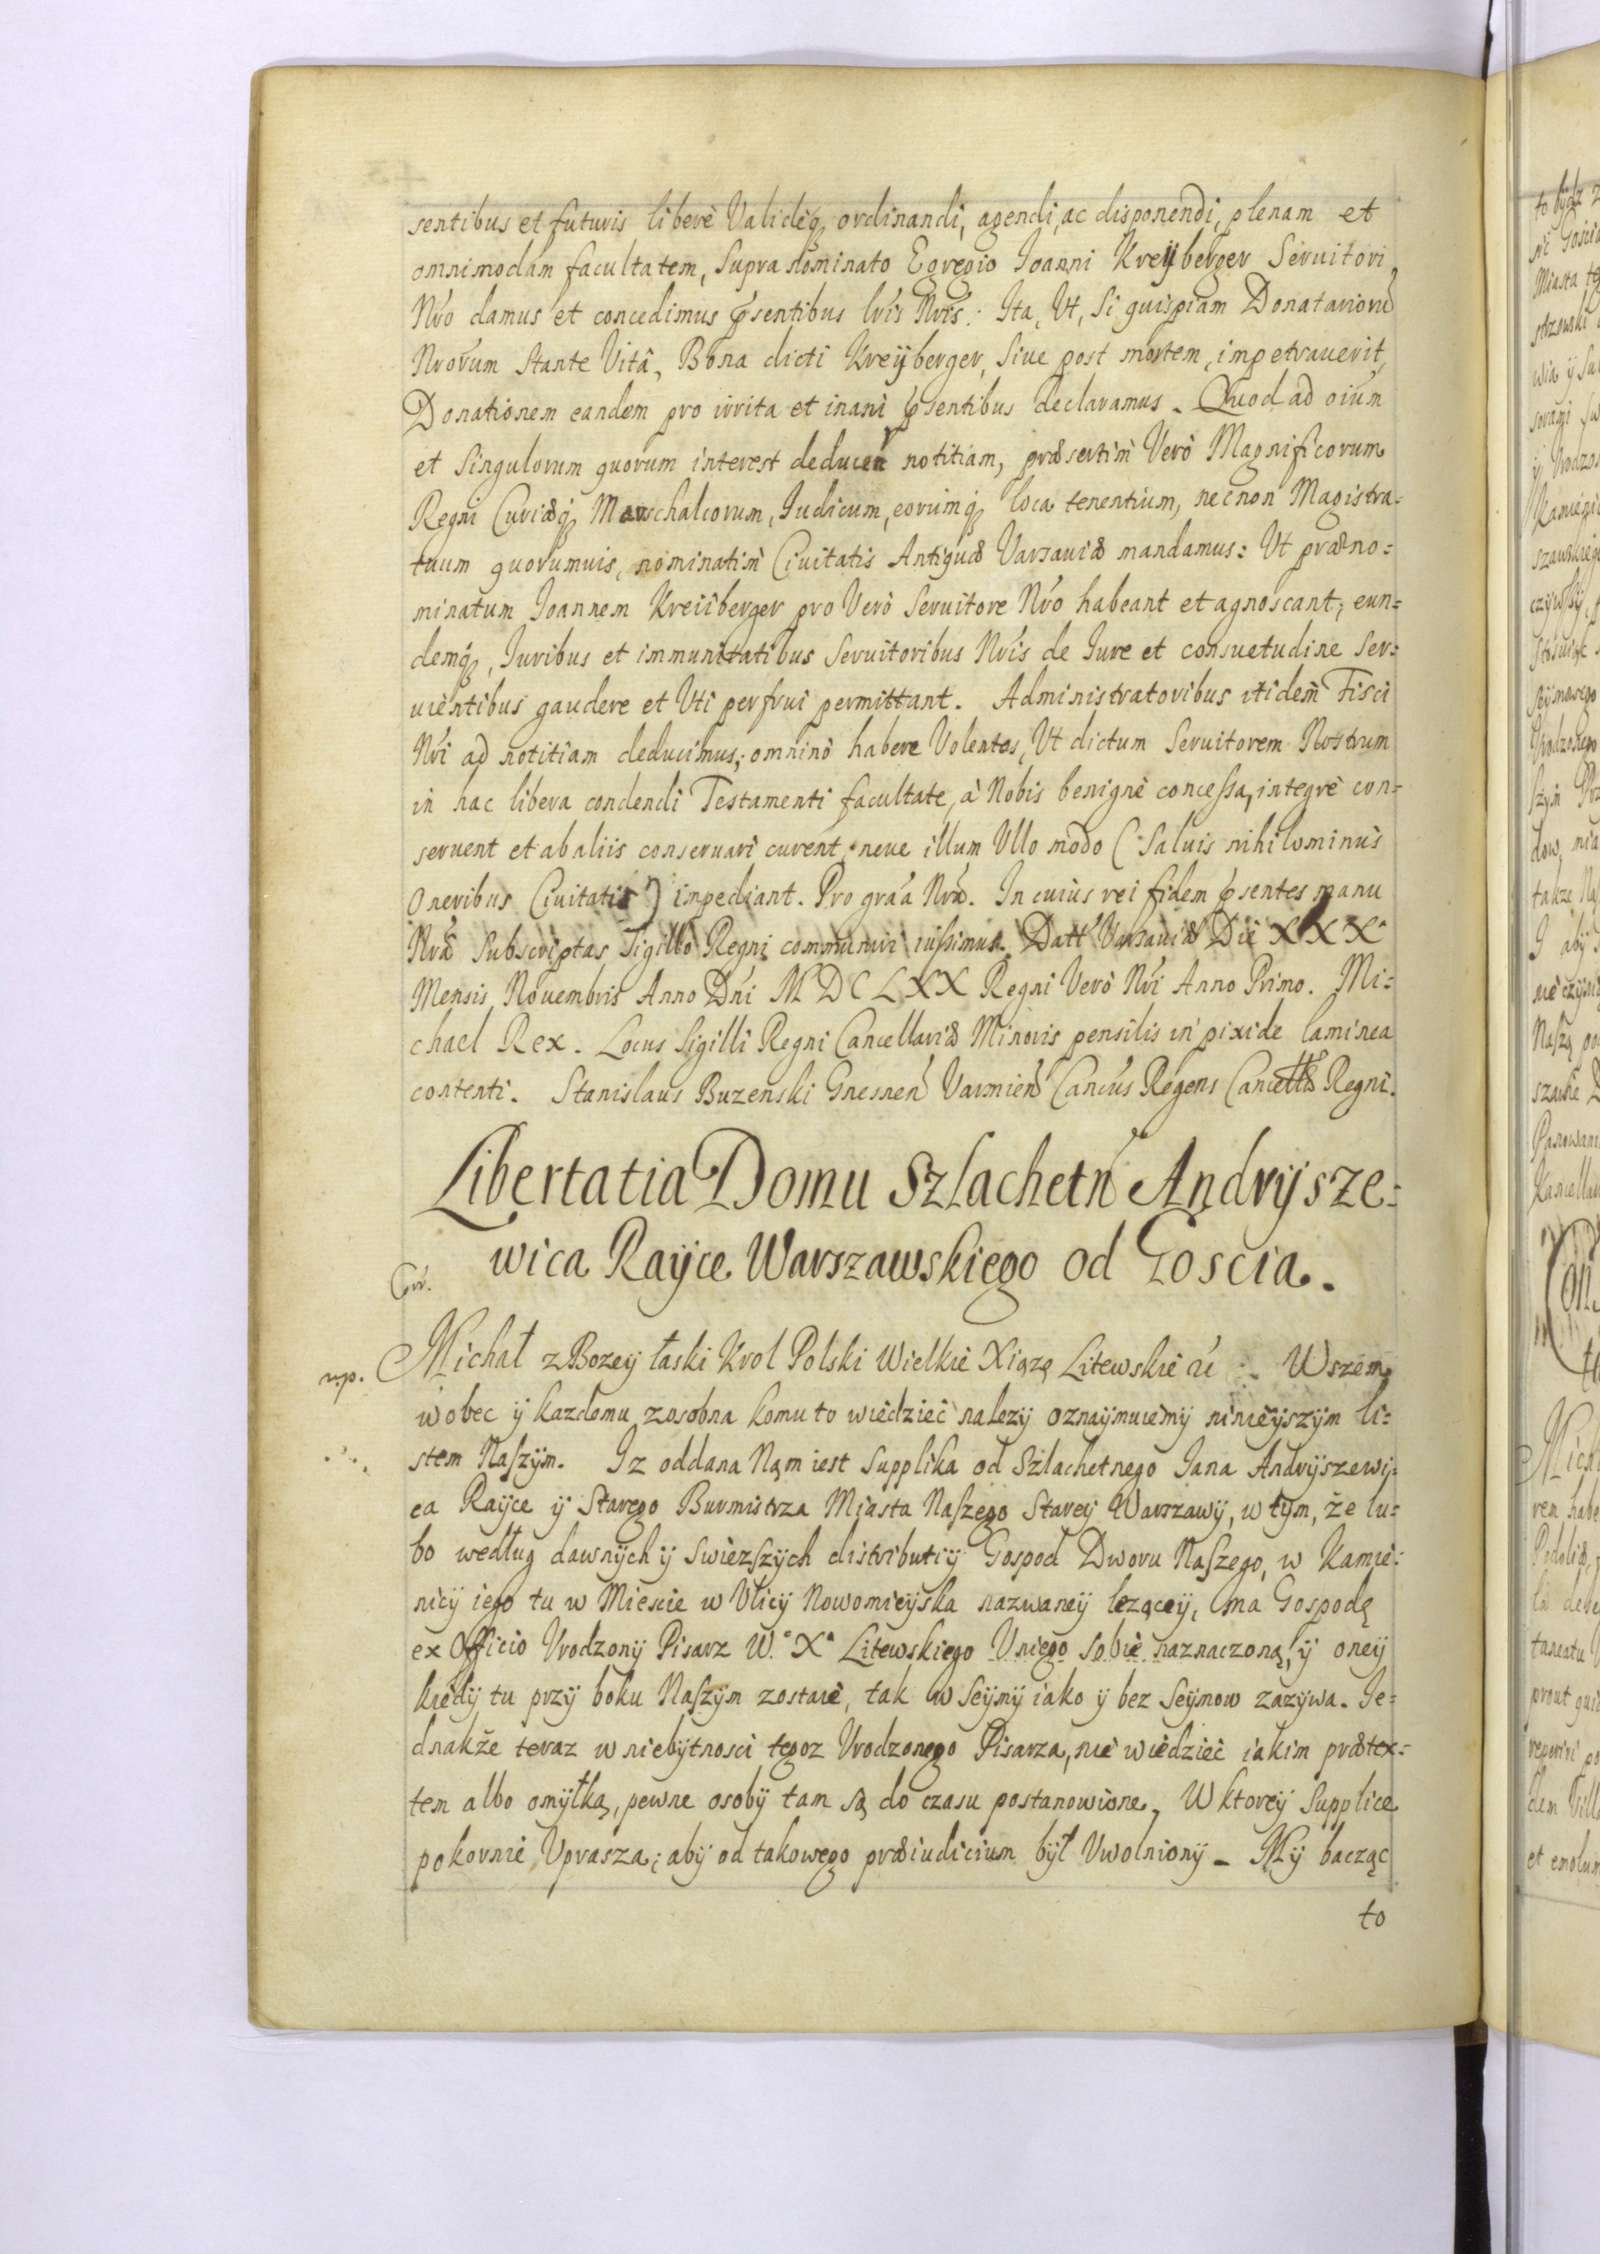 sentibus et futuris liberè Valideq; ordinandi, agendi, ac disponendi, plenam et
omnimodam facultatem, supra nominato Egregio Joanni Kreyberger Servitori
Nro damus et concedimus psentibus lris Nris: Ita, Ut, si quispiam Donatarioru
Nrorum stante Vitâ, Bona dicti Kreyberger, siue post mortem, impetrauerit,
Donationem eandem pro irrita et inani psentibus declaramus. Quod ad oium
et singulorum quorum interest deducen notitiam, præsertim Verò Magnificorum
Regni Curiæq; Marschalcorum, Judicum, eorumq; loca tenentium, necnon Magistra=
tuum quorumuis, nominatim Ciuitatis Antiquæ Varsauiæ mandamus: Ut præno=
minatum Joannem Kreiiberger pro Verò Seruitore Nro habeant et agnoscant, eun=
demq; Juribus et immunitatibus Seruitoribus Nris de Jure et consuetudine ser=
uientibus gaudere et Uti perfrui permittant. Administratoribus itidem Fisci
Nri ad notitiam deducimus, omninò habere Volentes, Ut dictum Seruitorem Nostrum
in hac libera condendi Testamenti facultate, à Nobis benignè concessa, integrè con=
seruent et ab aliis conseruari curent, neue illum Ullo modo (Saluis nihilominus
Oneribus Ciuitatis) impediant. Pro graa Nra. In cuius rei fidem psentes manu
Nra subscriptas Sigillo Regni communiri iussimus. Datt Varsauiæ Die XXX
Mensis Nouembris Anno Dni MDCLXX Regni Verò Nri Anno Primo. Mi=
chael Rex. Locus Sigilli Regni Cancellariæ Minoris pensilis in pixide laminea
contenti. Stanislaus Buzenski Gnesnen Varmien Cancus Regens Cancellæ Regni.
Libertatia Domu Szlachetn Andryszе=
wica Rayce Warszawskiego od Goscia.
Michał z Bozey łaski Krol Polski Wielkie Xiązę Litewskie &c. Wszem
wobec y kazdemu zosobna komu to wiedzieć nalezy oznaymuiemy ninieyszym li=
np.
stem Naszym. Iz oddana Nąm iest Supplika od Szlachetnego Jana Andryszewi=
ca Rayce y Starego Burmistrza Miasta Naszego Starey Warszawy, w tym, że lu=
bo według dawnych y swiezszych distributiy Gospod Dworu Naszego, w Kamie=
nicy iego tu w Miescie w Ulicy Nowomieyska nazwaney lezącey, ma Gospodę
ex Officio Urodzony Pisarz W. X. Litewskiego Uniego sobie naznaczoną, y oney
kiedy tu przy boku Naszym zostaie, tak w Seymy iako y bez Seymow zazywa. Je=
dnakże teraz w niebytnosci tegoz Urodzonego Pisarza, nie wiedzieć iakim prætex=
tem albo omyłką, pewne osoby tam są do czasu postanowione, W ktorey Supplice
pokornie Uprasza, aby od takowego præiudicium był Uwolniony. My bacząc
to